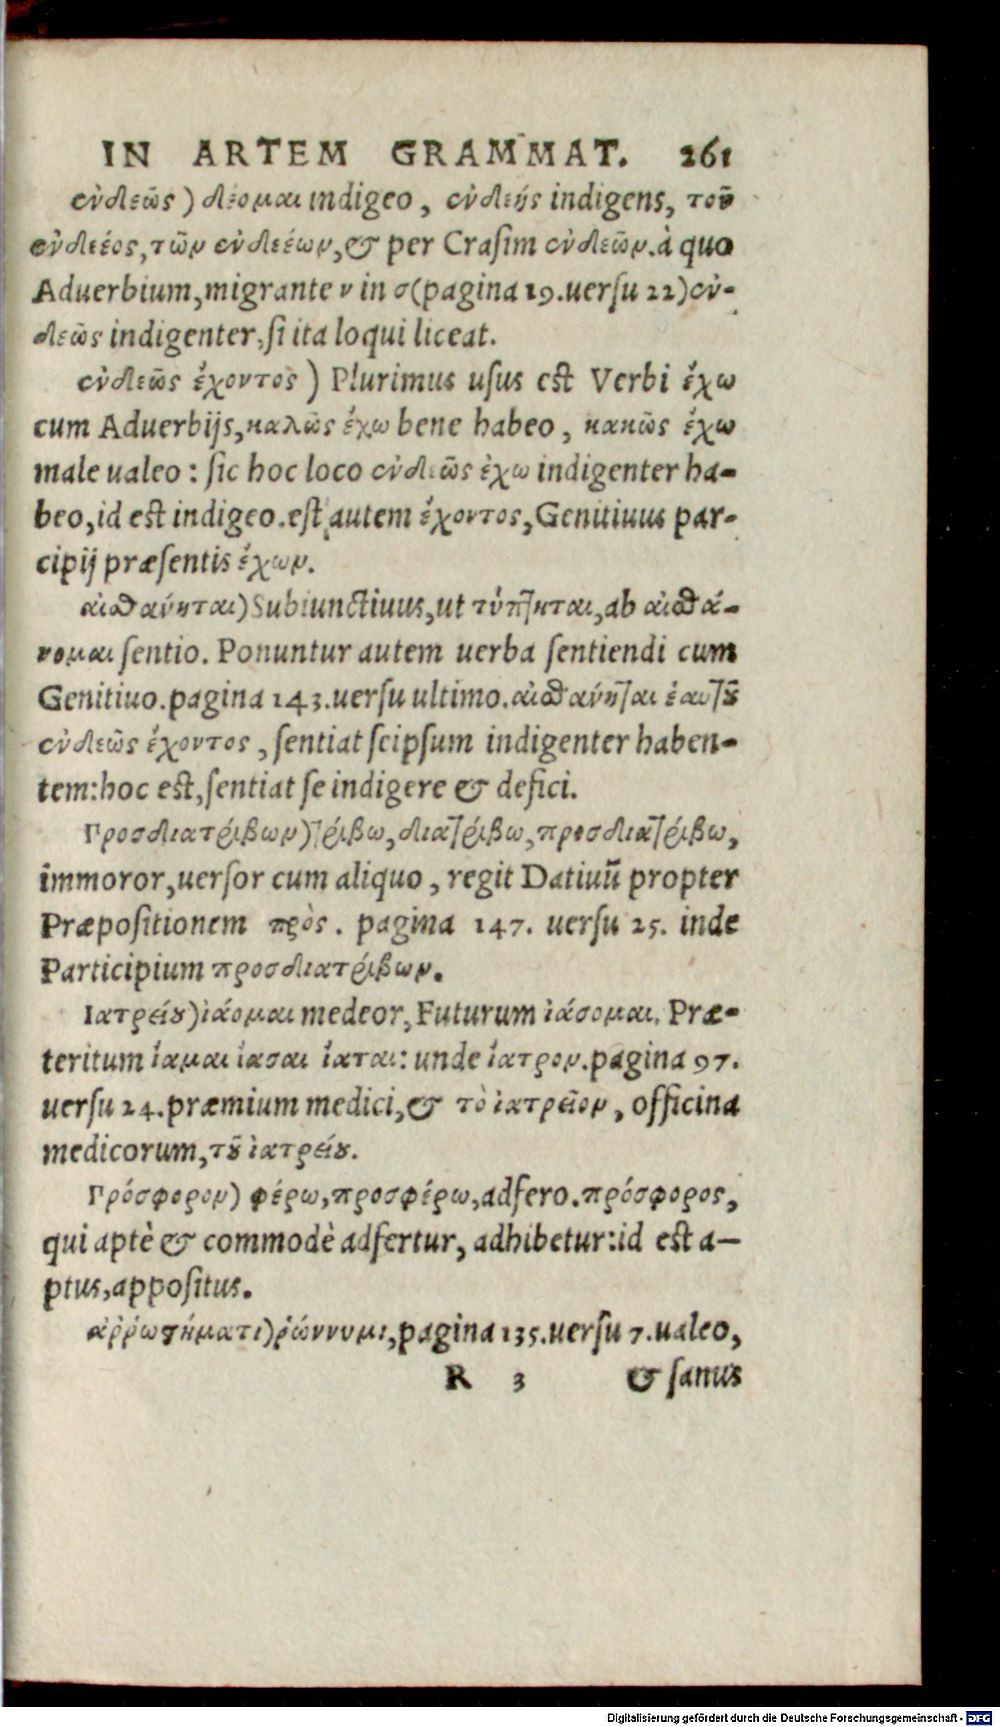 IN ARTEM GRAMMAT. 261
ἐνδεῶς) δέομαι indigeo, ἐνδεής indigens, τοῦ
ἐνδεέος, τῶν ἐνδεέων, & per Crasim ἐνδεῶν. à quo
Aduerbium, migrante ν in σ (pagina 19. uersu 22) ἐν-
δεῶς indigenter, si ita loqui liceat.
ἐνδεῶς ἔχοντος) Plurimus usus est Verbi ἔχω
cum Aduerbijs, καλῶς ἔχω bene habeo, κακῶς ἔχω
male ualeo: sic hoc loco ἐνδεῶς ἔχω indigenter ha-
beo, id est indigeo. est autem ἔχοντος, Genitiuus par-
cipij præsentis ἔχων.
αἰσθάνηται) Subiunctiuus, ut τύπτηται, ab αἰσθά-
νομαι sentio. Ponuntur autem uerba sentiendi cum
Genitiuo. pagina 143. uersu ultimo. αἰσθάνηται ἑαυτοῦ
ἐνδεῶς ἔχοντος, sentiat seipsum indigenter haben-
tem: hoc est, sentiat se indigere & defici.
Προσδιατρίβων) τρίβω, διατρίβω, προσδιατρίβω,
immoror, uersor cum aliquo, regit Datiuũ propter
Præpositionem πρὸς. pagina 147. uersu 25. inde
Participium προσδιατρίβων.
Ιατρείου) ἰάομαι medeor, Futurum ἰάσομαι. Præ-
teritum ἴαμαι ἴασαι ἴαται: unde ἴατρον. pagina 97.
uersu 24. præmium medici, & τὸ ἰατρεῖον, officina
medicorum, τοῦ ἰατρείου.
Πρόσφορον) φέρω, προσφέρω, adfero. πρόσφορος,
qui aptè & commodè adfertur, adhibetur: id est a-
ptus, appositus.
ἀῤῥωστήματι) ῥώννυμι, pagina 135. uersu 7. ualeo,
R 3 & sanus
Digitalisierung gefördert durch die Deutsche Forschungsgemeinschaft - DFG